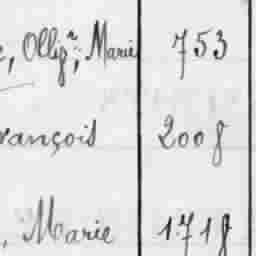 , Ollig^r, Marie 753
rançois 2008
, Marie 1718